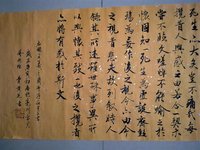 死生亦大矣豈不痛哉每
攬昔人興感之由若合一契未
嘗不臨文嗟悼不能喻之於
懷固知死生為虛誕齊彭
殤為妄作後之視今亦由今
之視昔悲夫故列敘時人
錄其所述雖世殊事異所
以興懷其致一也後之攬者
亦將有感於斯文